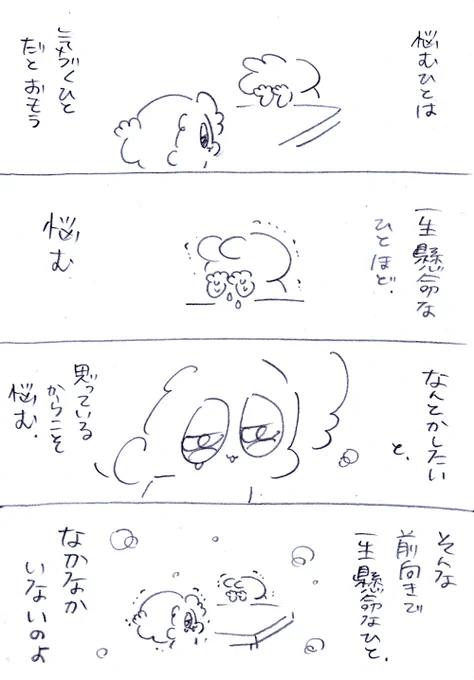 悩むひとは
気づくひと
だとおもう
一生懸命な
ひとほど.
悩む
なんとかしたい
と、
思っている
からこそ
悩む.
そんな
前向きで
一生懸命なひと、
なかなか
いないのよ